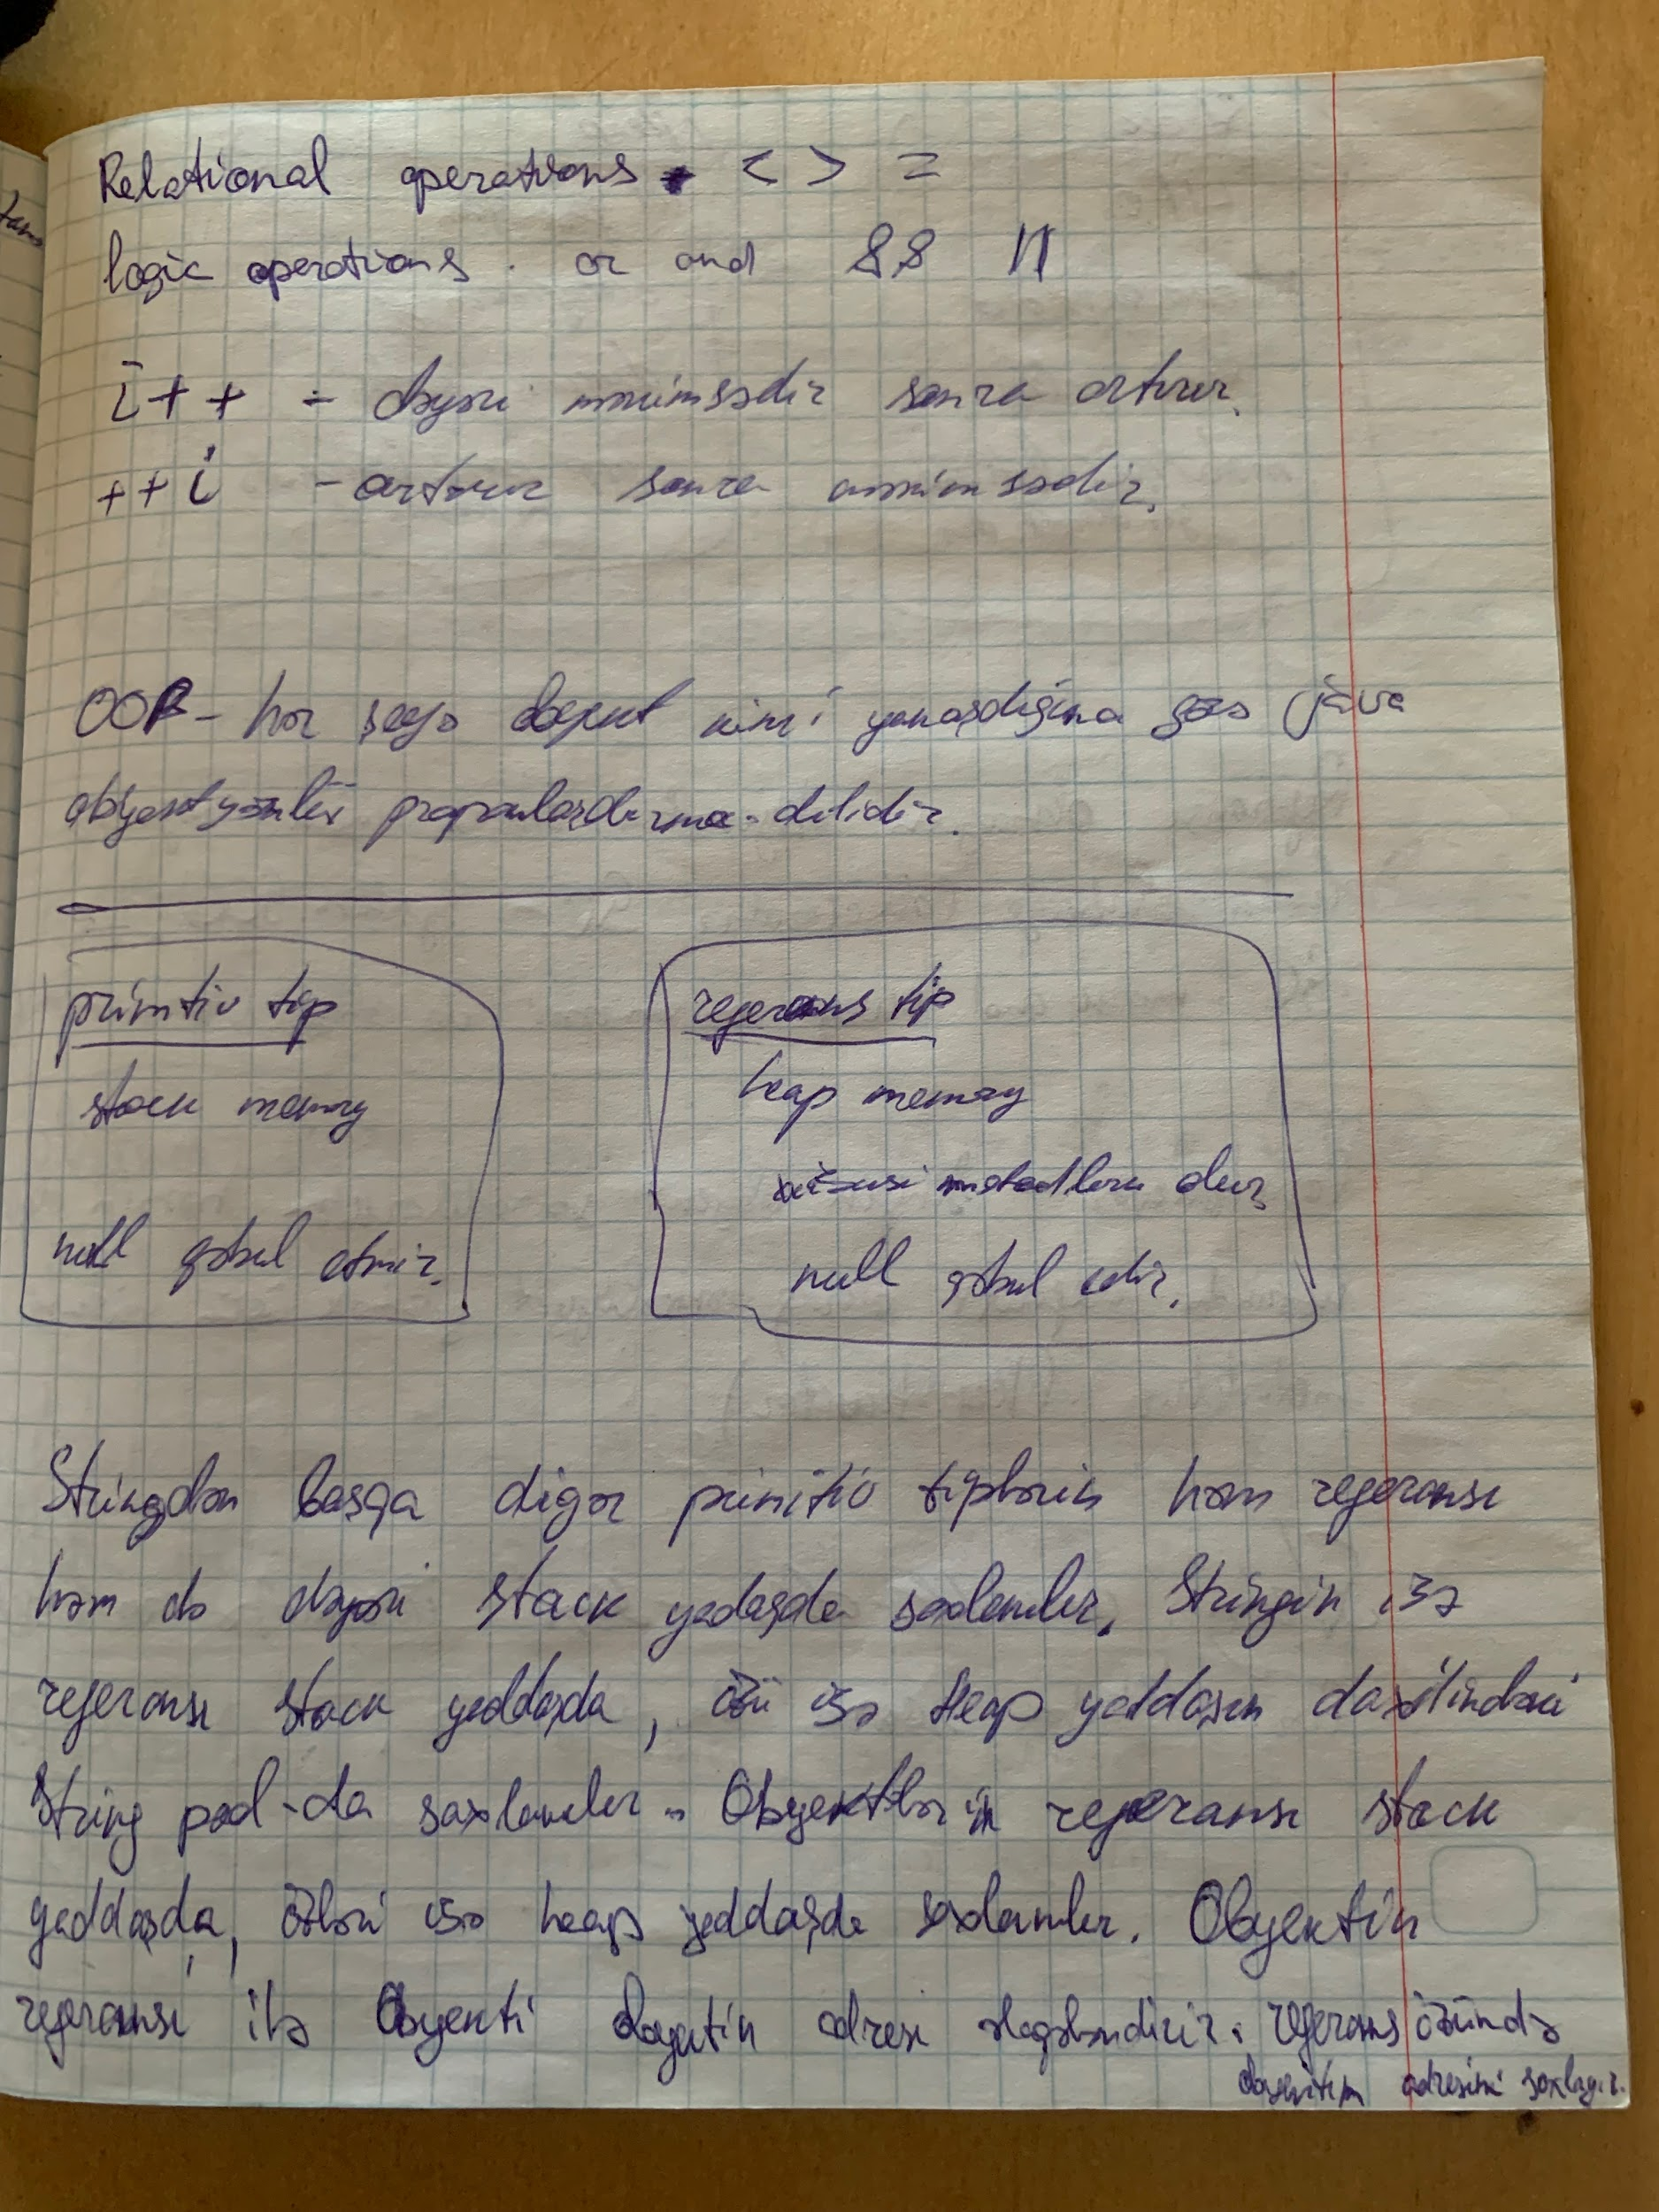 Relational operations. < > =
logic operations. or and && ||
i++ - dəyəri mənimsədir sonra artırır.
++i - artırır sonra mənimsədir.
OOP - hər şeyə obyekt kimi yanaşdığına görə java
obyektyönlü proqramlaşdırma dilidir.
primitiv tip
stack memory
null qəbul etmir.
referans tip
heap memory
xüsusi metodları olur
null qəbul edir.
Stringdən başqa digər primitiv tiplərin həm referansı
həm də dəyəri stack yadaşda saxlanılır. Stringin isə
referansı stack yaddaşda, özü isə Heap yaddaşın daxilindəki
String pool-da saxlanılır. Obyektlərin referansı stack
yaddaşda, özləri isə heap yaddaşda saxlanılır. Obyektin
referansı ilə Obyekti obyektin adresi əlaqələndirir. referans özündə
obyektin adresini saxlayır.